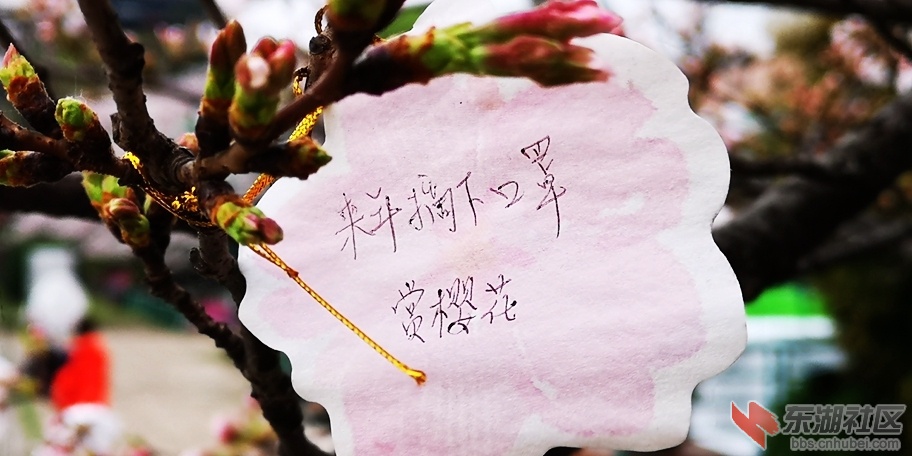 来年摘下口罩
赏樱花
东湖社区
bbs.cnhubei.com